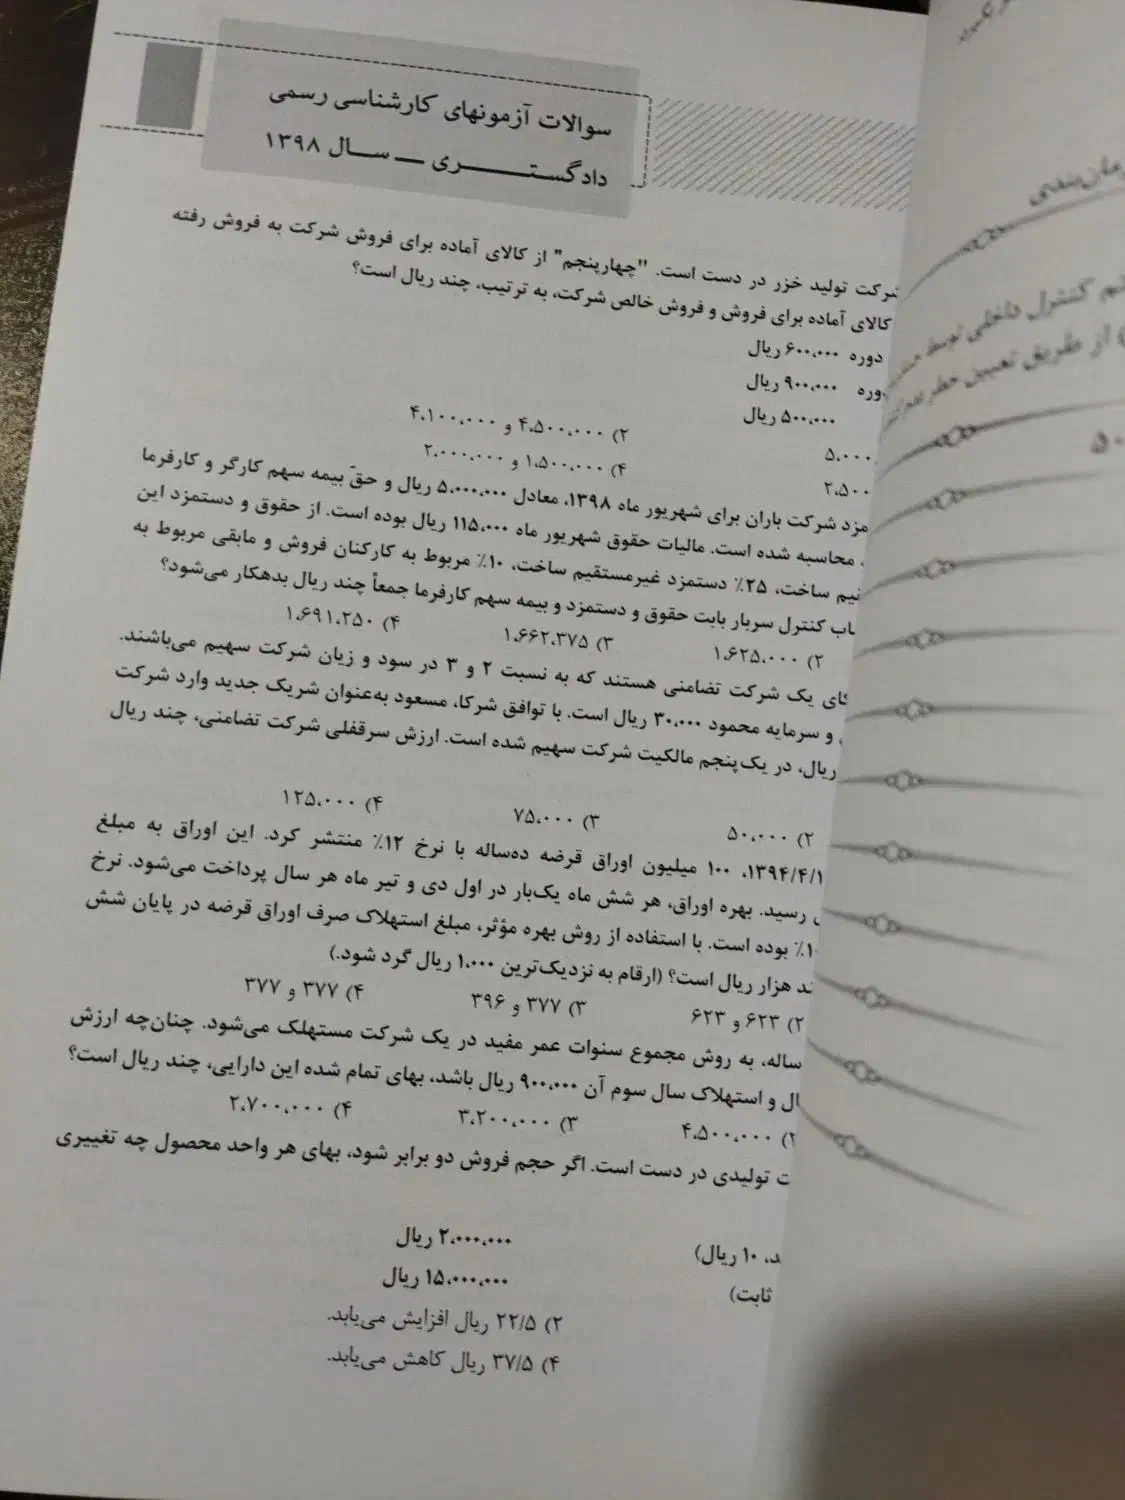 سوالات آزمونهای کارشناسی رسمی
دادگستری — سال ۱۳۹۸
شرکت تولید خزر در دست است. "چهارپنجم" از کالای آماده برای فروش شرکت به فروش رفته
کالای آماده برای فروش و فروش خالص شرکت، به ترتیب، چند ریال است؟
دوره ۶۰۰،۰۰۰ ریال
دوره ۹۰۰،۰۰۰ ریال
۵۰۰،۰۰۰ ریال
۵،۰۰۰ ۲) ۴،۵۰۰،۰۰۰ و ۴،۱۰۰،۰۰۰
۲،۵۰۰ ۴) ۱،۵۰۰،۰۰۰ و ۲،۰۰۰،۰۰۰
مزد شرکت باران برای شهریور ماه ۱۳۹۸، معادل ۵،۰۰۰،۰۰۰ ریال و حقّ بیمه سهم کارگر و کارفرما
محاسبه شده است. مالیات حقوق شهریور ماه ۱۱۵،۰۰۰ ریال بوده است. از حقوق و دستمزد این
ساخت، ۲۵٪ دستمزد غیرمستقیم ساخت، ۱۰٪ مربوط به کارکنان فروش و مابقی مربوط به
کنترل سربار بابت حقوق و دستمزد و بیمه سهم کارفرما جمعاً چند ریال بدهکار می‌شود؟
۲) ۱،۶۲۵،۰۰۰ ۳) ۱،۶۶۲،۳۷۵ ۴) ۱،۶۹۱،۲۵۰
یک شرکت تضامنی هستند که به نسبت ۲ و ۳ در سود و زیان شرکت سهیم می‌باشند.
و سرمایه محمود ۳۰،۰۰۰ ریال است. با توافق شرکا، مسعود به‌عنوان شریک جدید وارد شرکت
ریال، در یک‌پنجم مالکیت شرکت سهیم شده است. ارزش سرقفلی شرکت تضامنی، چند ریال
۲) ۵۰،۰۰۰ ۳) ۷۵،۰۰۰ ۴) ۱۲۵،۰۰۰
۱۳۹۴/۴/۱، ۱۰۰ میلیون اوراق قرضه ده‌ساله با نرخ ۱۲٪ منتشر کرد. این اوراق به مبلغ
رسید. بهره اوراق، هر شش ماه یک‌بار در اول دی و تیر ماه هر سال پرداخت می‌شود. نرخ
بوده است. با استفاده از روش بهره مؤثر، مبلغ استهلاک صرف اوراق قرضه در پایان شش
هزار ریال است؟ (ارقام به نزدیک‌ترین ۱،۰۰۰ ریال گرد شود.)
۲) ۶۲۳ و ۶۲۳ ۳) ۳۷۷ و ۳۹۶ ۴) ۳۷۷ و ۳۷۷
ساله، به روش مجموع سنوات عمر مفید در یک شرکت مستهلک می‌شود. چنان‌چه ارزش
و استهلاک سال سوم آن ۹۰۰،۰۰۰ ریال باشد، بهای تمام شده این دارایی، چند ریال است؟
۲) ۴،۵۰۰،۰۰۰ ۳) ۳،۲۰۰،۰۰۰ ۴) ۲،۷۰۰،۰۰۰
تولیدی در دست است. اگر حجم فروش دو برابر شود، بهای هر واحد محصول چه تغییری
۱۰ ریال) ۲،۰۰۰،۰۰۰ ریال
ثابت) ۱۵،۰۰۰،۰۰۰ ریال
۲) ۲۲/۵ ریال افزایش می‌یابد.
۴) ۳۷/۵ ریال کاهش می‌یابد.